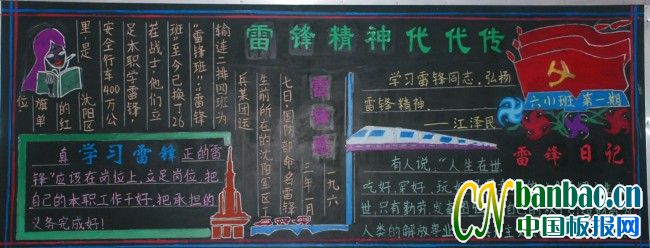 雷锋精神代代传
一九六
三年一月
七日,国防部命名雷锋
生前所在的沈阳军区工
兵某团运
输连二排四班为
“雷锋班”:“雷锋
班”至今已换了26
在战士,他们立
足本职学雷锋,
安全行车400万公
里,是 沈阳区
的红
旗单
位.
学习雷锋
真 正的雷
锋”应该在岗位上,立足岗位,把
自己的本职工作干好,把承担的
义务完成好!
学习雷锋同志,弘扬
雷锋精神
——江泽民
六小班 第一期
雷锋日记
有人说,“人生在世,
吃好,穿好,玩
世,只有勤劳,发奋
人类的解放事业
CN banbao.cn
中国板报网